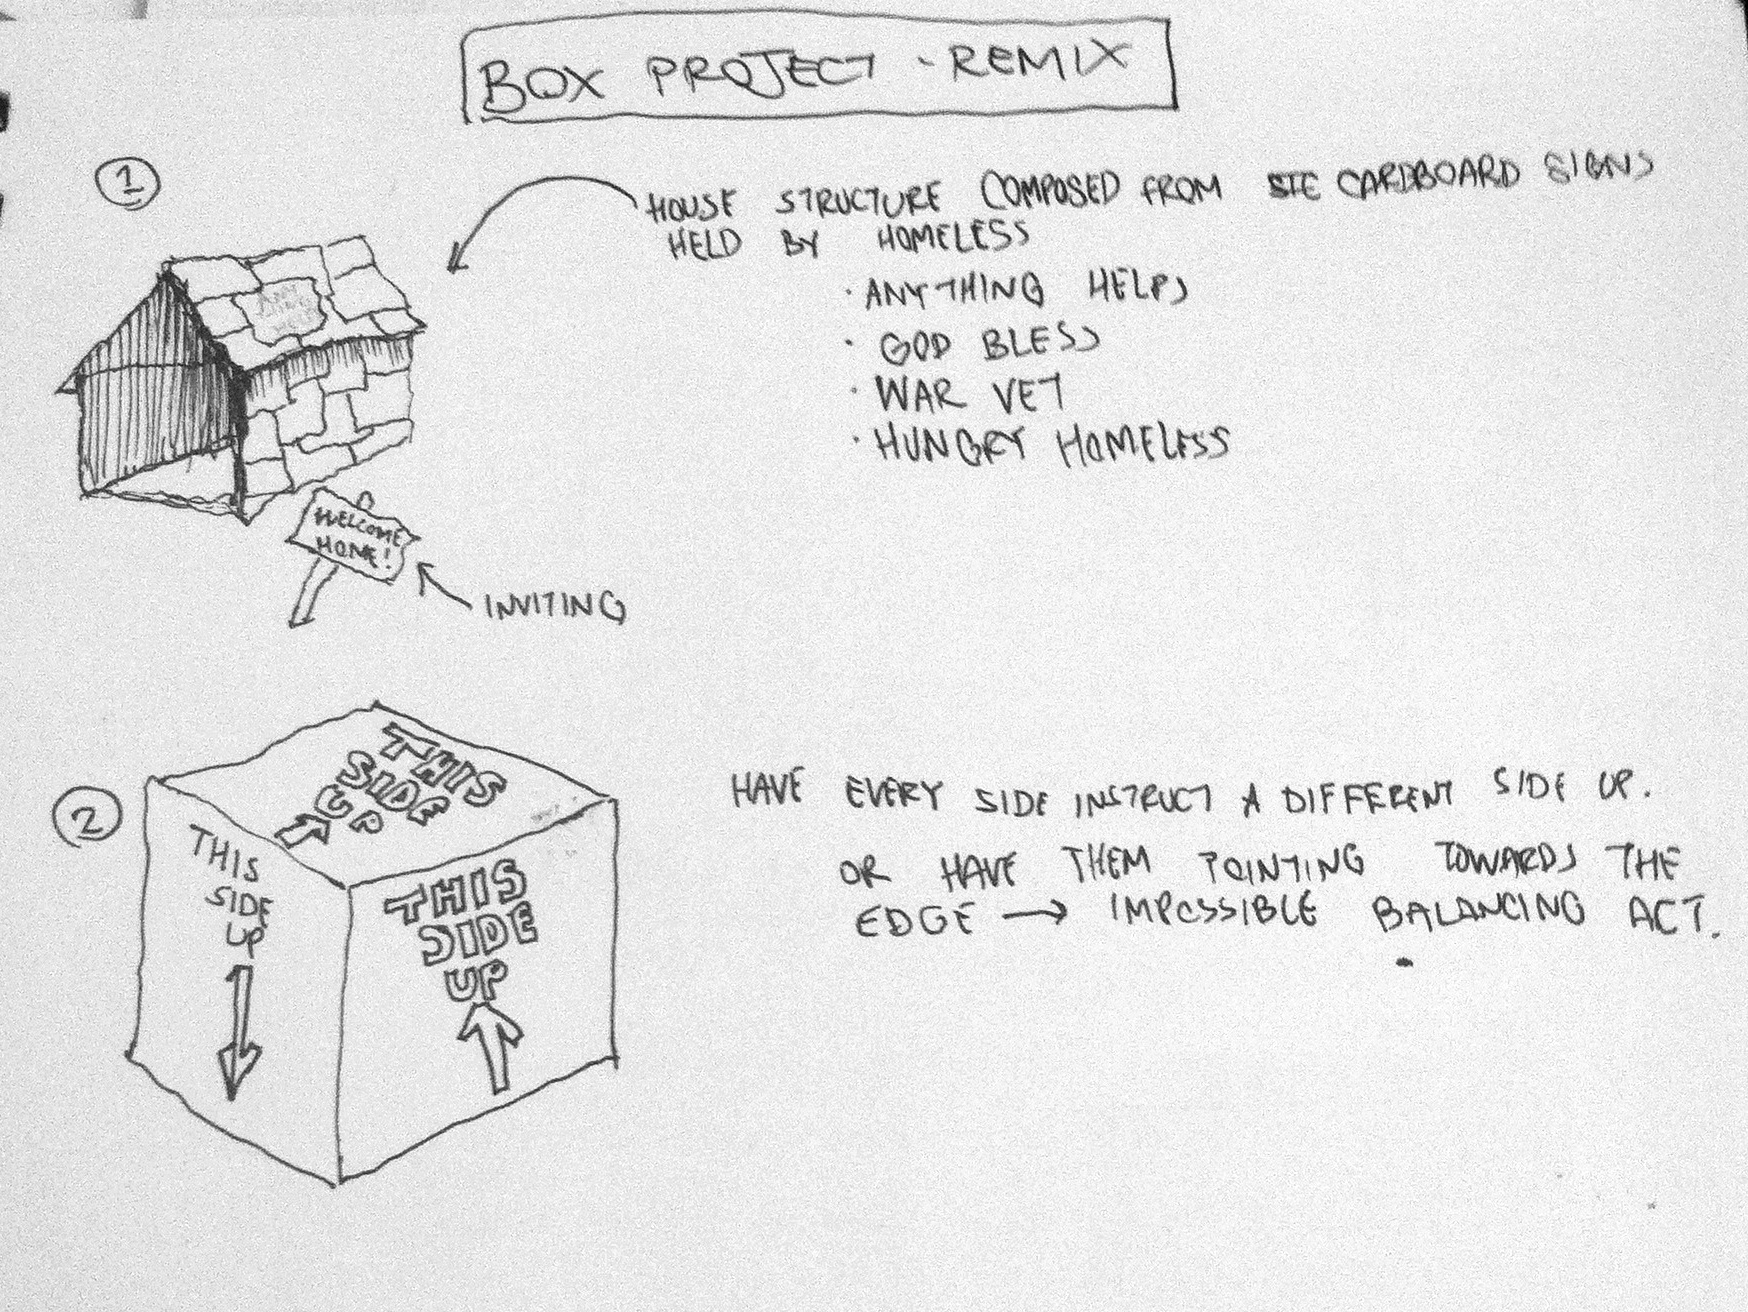 BOX PROJECT - REMIX
1
HOUSE STRUCTURE COMPOSED FROM CARDBOARD SIGNS
HELD BY HOMELESS
· ANYTHING HELPS
· GOD BLESS
· WAR VET
· HUNGRY HOMELESS
WELCOME
HOME!
INVITING
2
THIS
SIDE
UP
THIS
SIDE
UP
THIS
SIDE
UP
HAVE EVERY SIDE INSTRUCT A DIFFERENT SIDE UP.
OR HAVE THEM POINTING TOWARDS THE
EDGE → IMPOSSIBLE BALANCING ACT.